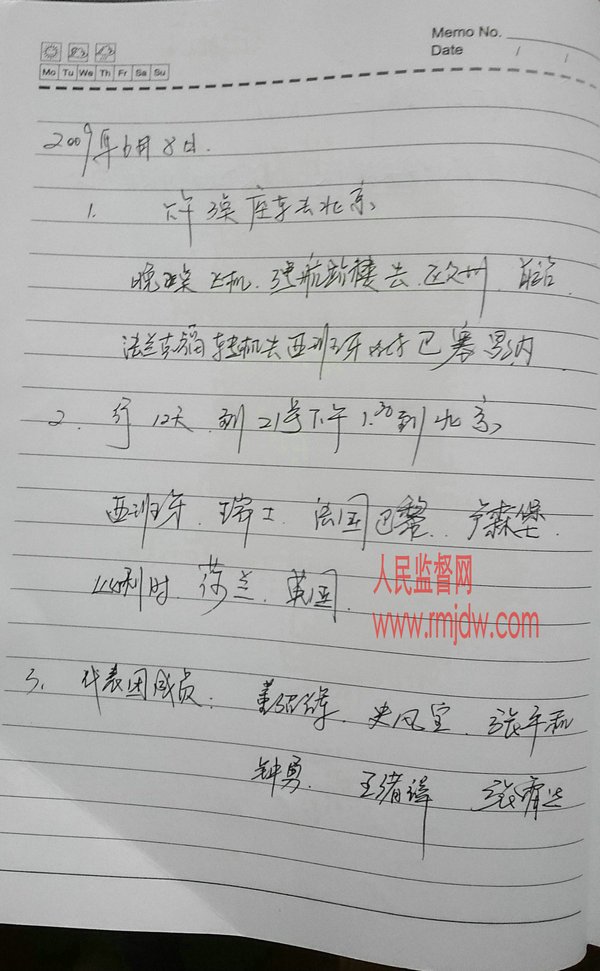 Memo No.
Date / /
Mo Tu We Th Fr Sa Su
2009年6月8日.
1. 下午 座车去北京
晚 飞机. 航 去. 欧州. 前治.
法兰克福转机去西班牙 巴塞 内
2. 行12天. 到21号下午1.30到北京
西班牙. 瑞士. 法国巴黎. 卢森堡.
比利时. 荷兰. 英国.
人民监督网
www.rmjdw.com
3. 代表团成员: 董 . 史风宝. 张平和
钟勇. 王绪祥 张